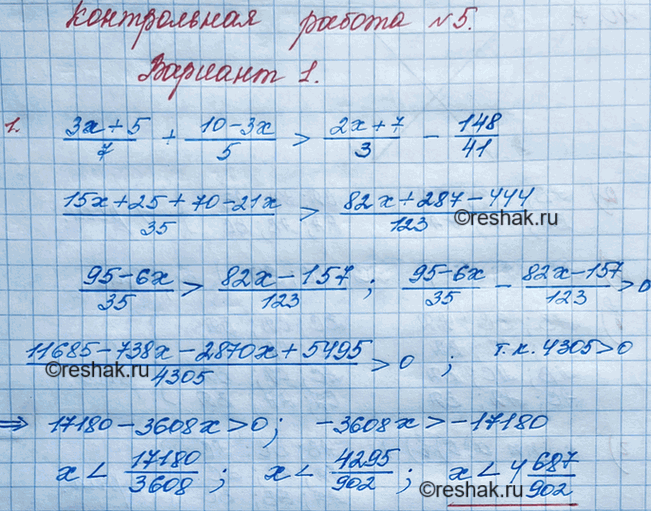 Контрольная работа №5.
Вариант 1.
1. (3x+5)/7 + (10-3x)/5 > (2x+7)/3 - 148/41
(15x+25+70-21x)/35 > (82x+287-444)/123
©reshak.ru
(95-6x)/35 > (82x-157)/123 ; (95-6x)/35 - (82x-157)/123 > 0
(11685-738x-2870x+5495)/4305 > 0 ; т.к. 4305>0
©reshak.ru
⇒ 17180-3608x>0; -3608x>-17180
x < 17180/3608 ; x < 4295/902 ; x < 4 687/902
©reshak.ru